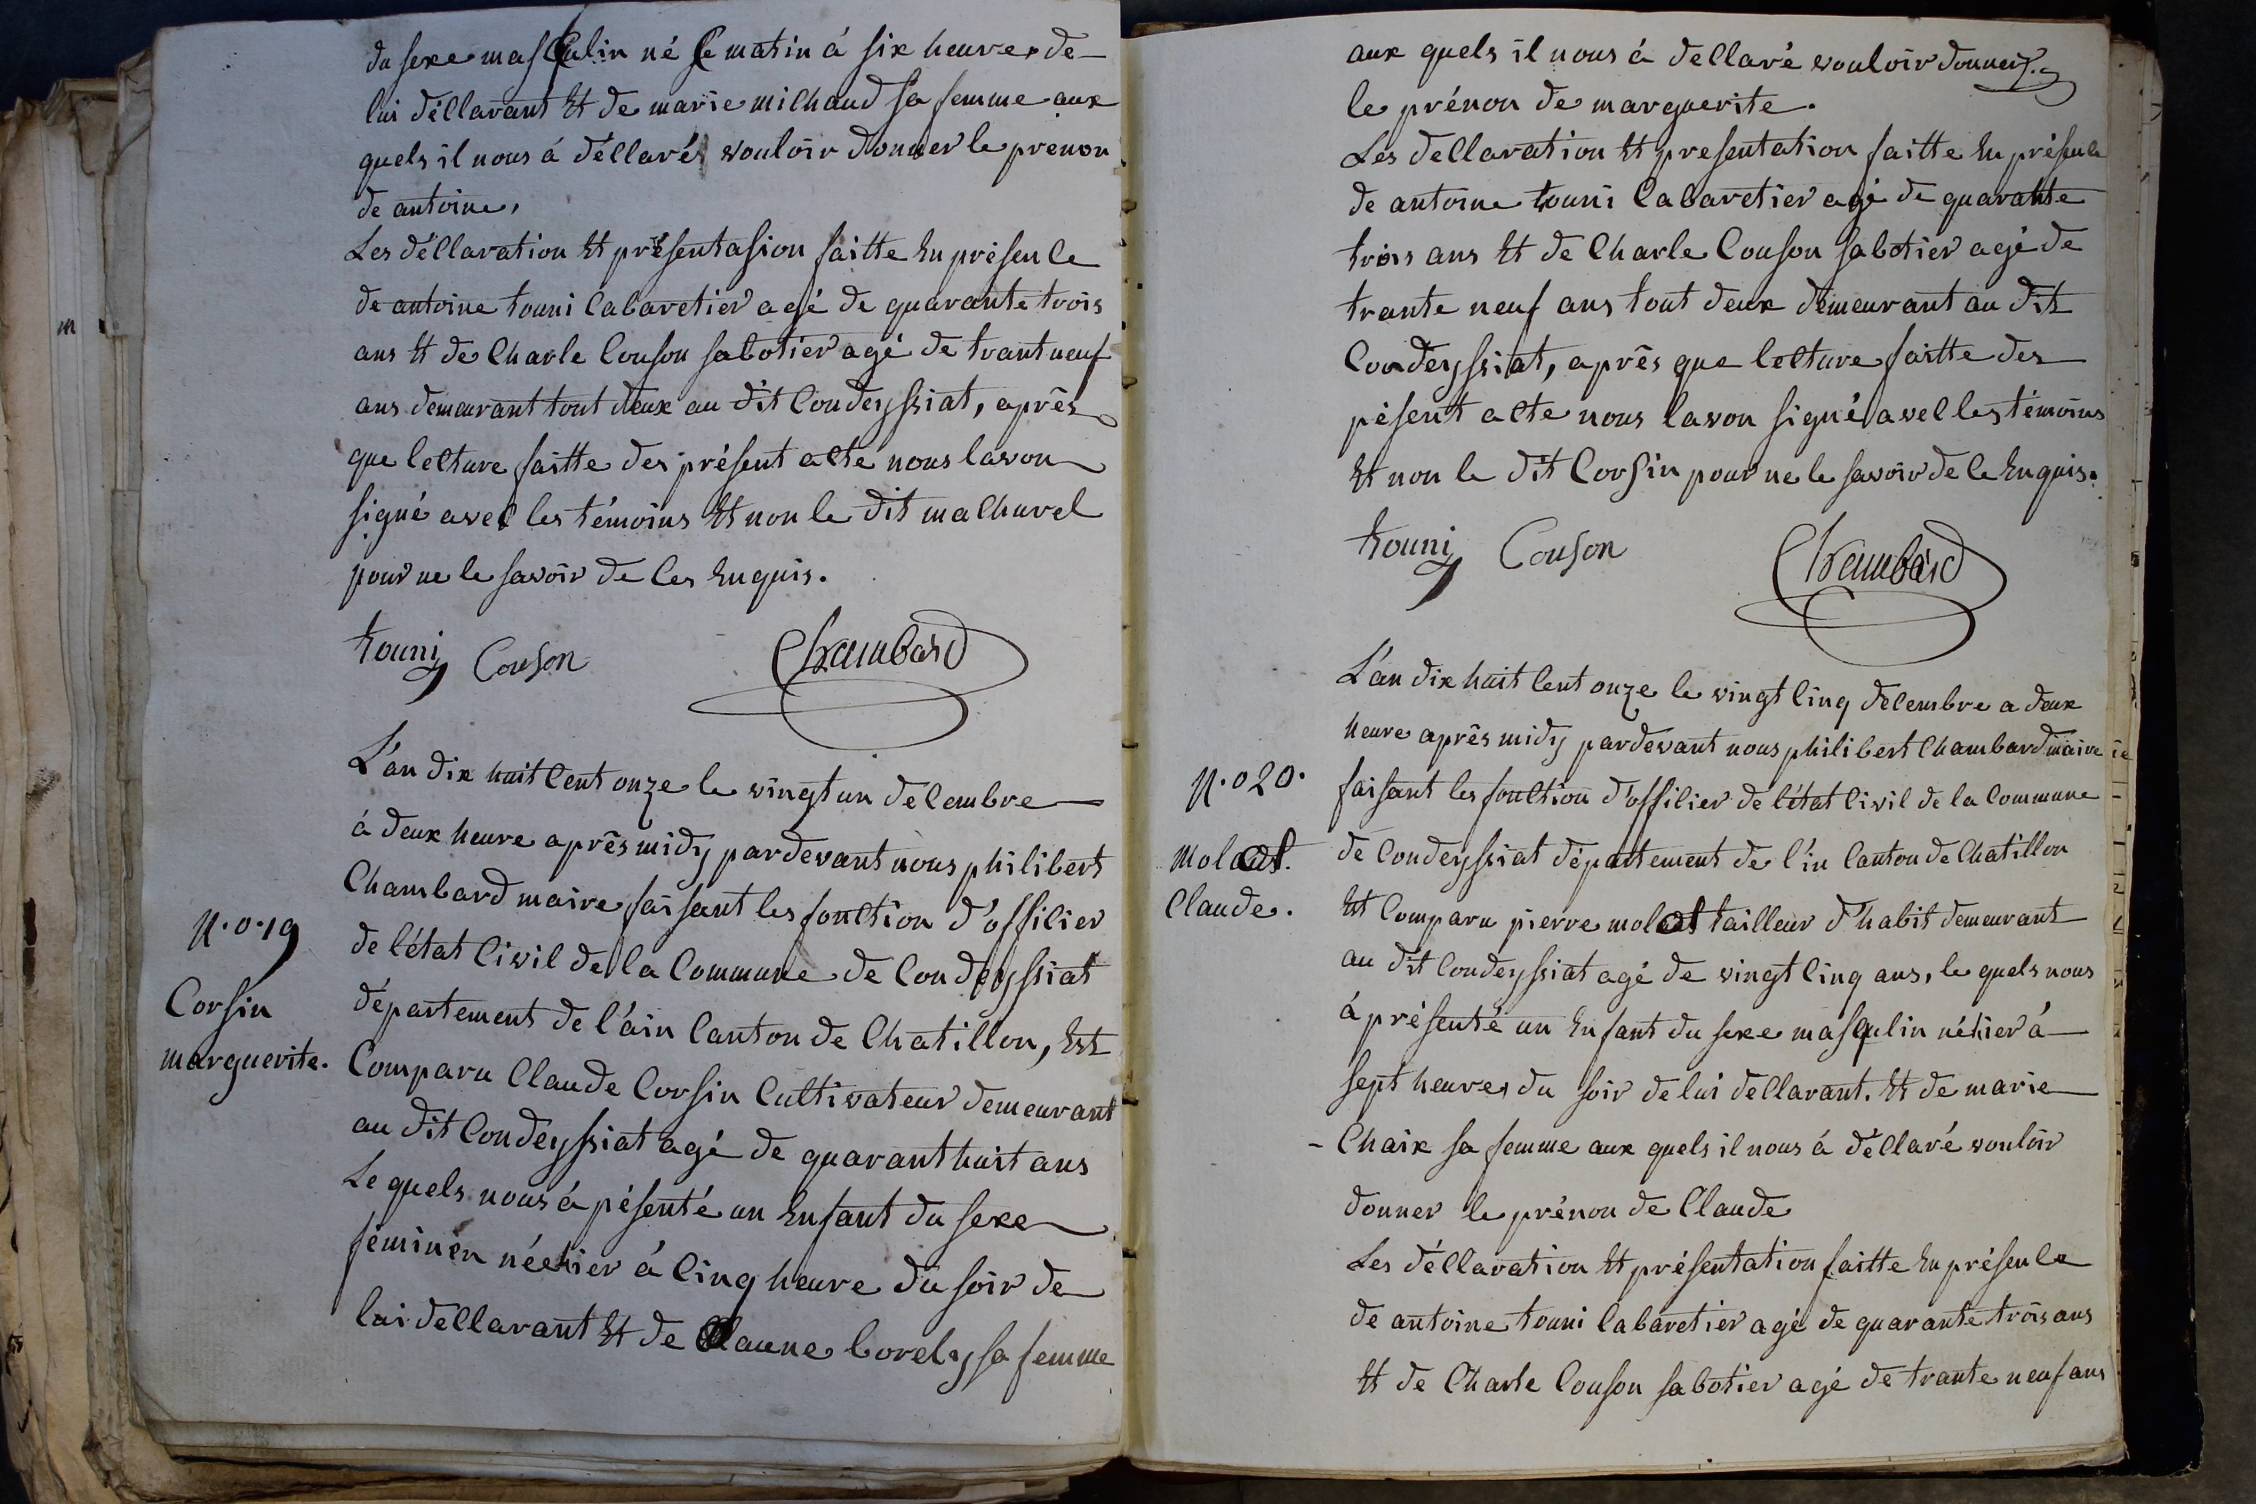 du sexe masculin né ce matin á six heures de
lui déclarant et de marie michaud sa femme aux
quels il nous á déclarés vouloir donner le prenon
de antoine,
Les déclaration et présentasion faitte en présence
de antoine touni cabaretier agé de quarante trois
ans et de Charle Couson sabotier agé de trant neuf
ans demeurant tout deux au dit Condeyssiat, aprês
que lecture faitte des présent acte nous lavon
signé avec les témoins et non le dit machurel
pour ne le savoir de ces enquis.
touni Couson Chambard
L'án dix huit cent onze le vingt un decembre
á deux heure aprês midy pardevant nous philibert
Chambard maire faisant les fonction d'officier
de l'état civil de la commune de Condeyssiat
département de l'áin canton de Chatillon, Est
N.o.19
Corsin
marguerite.
Comparu Claude Corsin cultivateur demeurant
au dit Condeyssiat agé de quarant huit ans
Le quels nous á pésenté un enfant du sexe
féminen née hier á cinq heure du soir de
lui declarant et de Claune borely sa femme
aux quels il nous á declaré vouloir donner
le prénon de marguerite.
Les declaration et presentation faitte en présence
de antoine touni cabaretier agé de quarante
trois ans et de Charle Couson sabotier agé de
trante neuf ans tout deux demeurant au dit
Condeyssiat, aprês que lecture faitte des
pésent acte nous lavon signé avec les témoins
et non le dit Corsin pour ne le savoir de ce enquis.
touni Couson Chambard
L'án dix huit cent onze le vingt cinq decembre a deux
heure aprês midy pardevant nous philibert Chambard maire
N.o20.
molat.
Claude.
faisant les fonction d'officier de l'état civil de la commune
de Condeyssiat département de l'in canton de Chatillon
Est Comparu pierre molat tailleur d'habit demeurant
au dit Condeyssiat agé de vingt cinq ans, le quels nous
á présenté un enfant du sexe masqulin né hier á
sept heures du soir de lui declarant. et de marie
- Chaix sa femme aux quels il nous á déclaré vouloir
donner le prénon de Claude
Les déclaration et présentation faitte en présence
de antoine touni cabaretier agé de quarante trois ans
et de Charle Couson sabotier agé de trante neuf ans